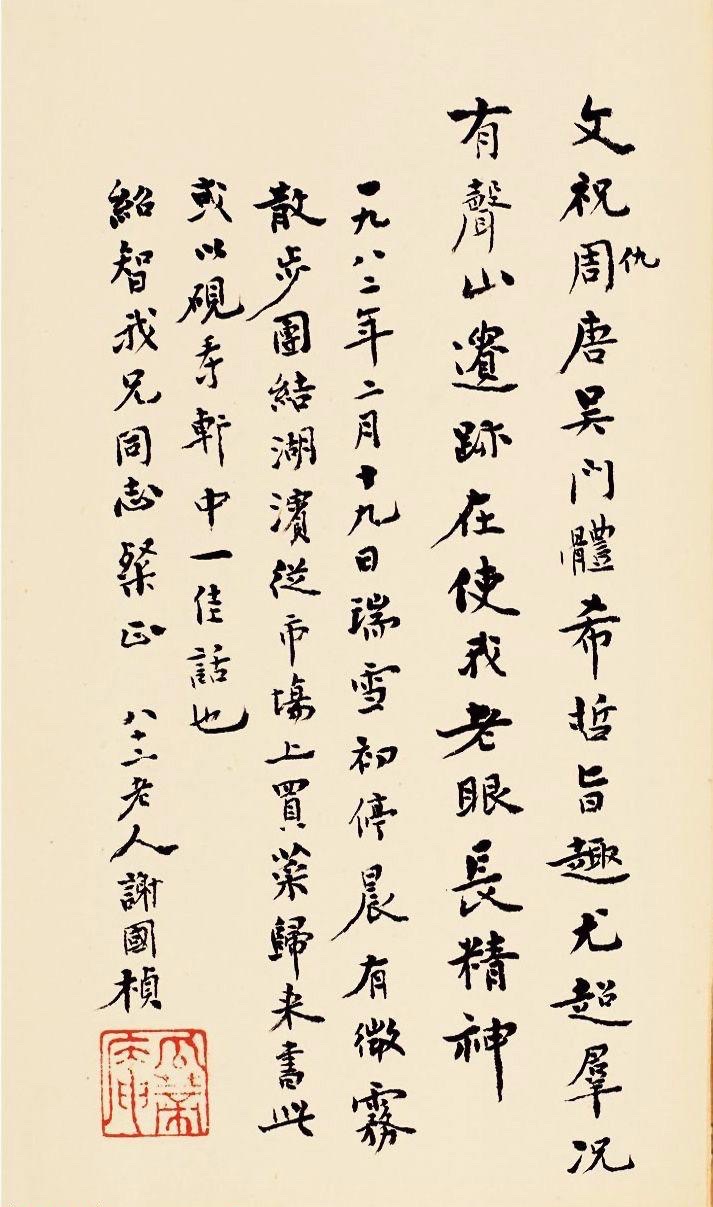 文祝周唐吴門體希哲旨趣尤超羣况
仇
有聲山遺跡在使我老眼長精神
一九八二年二月十九日瑞雪初停晨有微霧
散步團結湖濱從市場上買菜歸来書此
或以硯軒中一佳話也
紹智我兄同志粲正 八十二老人謝國楨
瓜蒂庵